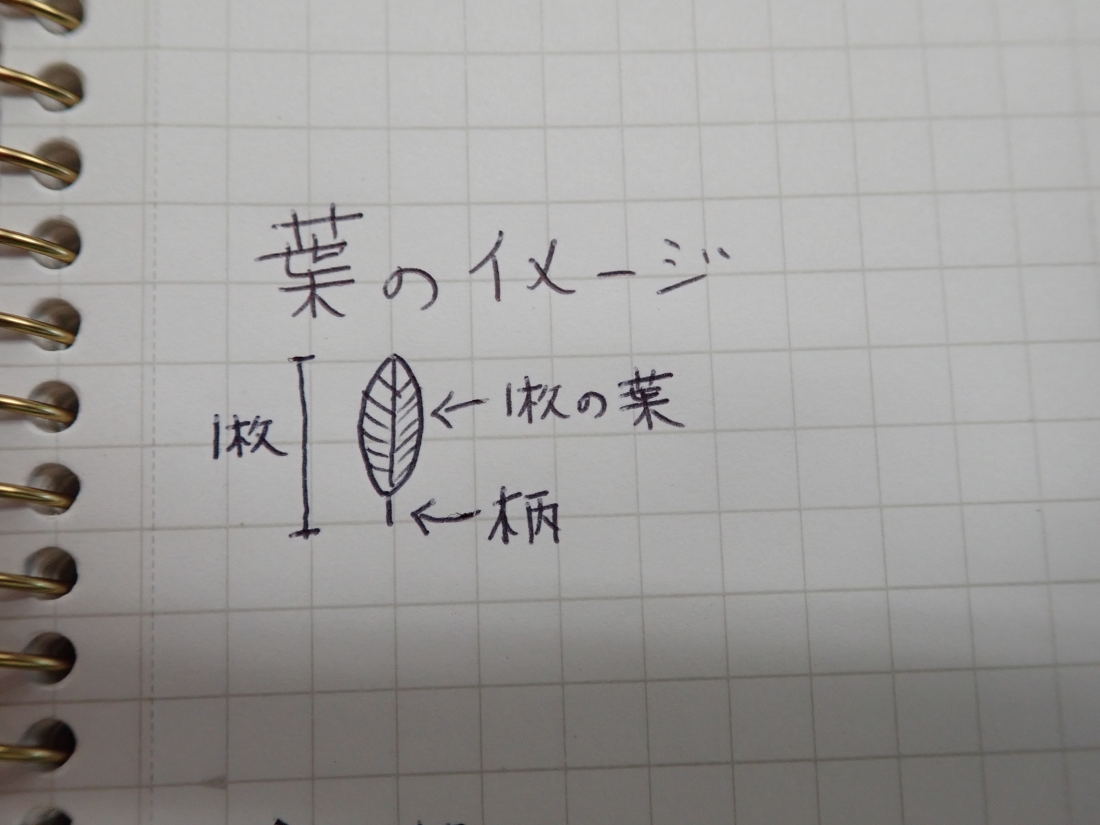 葉のイメージ
1枚
1枚の葉
柄